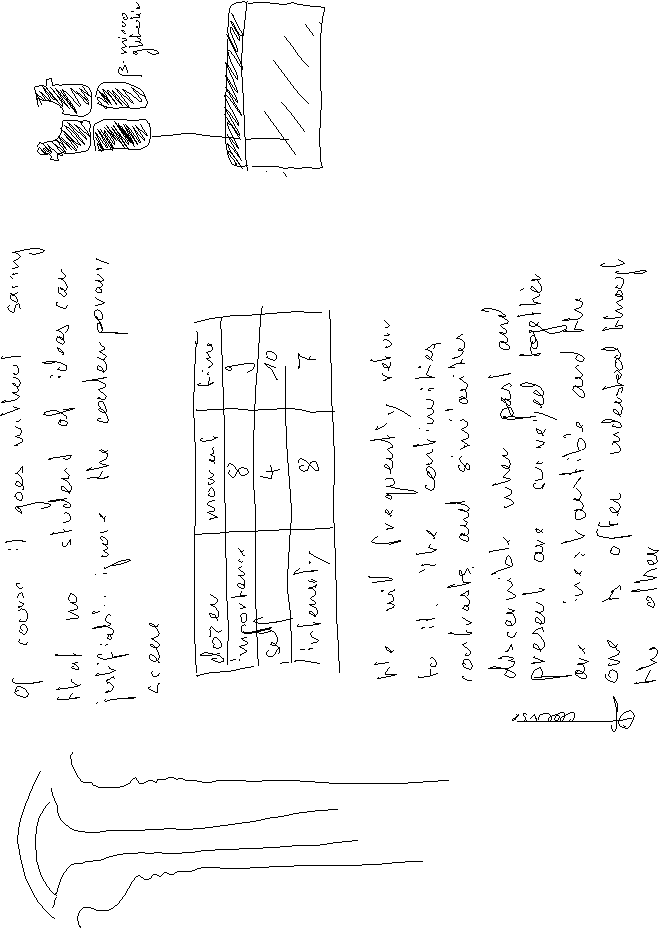 β-micro
globulin
of course it goes without saying
that no student of ideas can
ignore the contemporary
scene
dozen moment time
importance 8 9
self 4 10
intensity 8 7
We will frequently return
to it. The continuities,
contrasts and similarities
discernible when past and
present are surveyed together
are inexhaustible and the
one is often understood through
the other